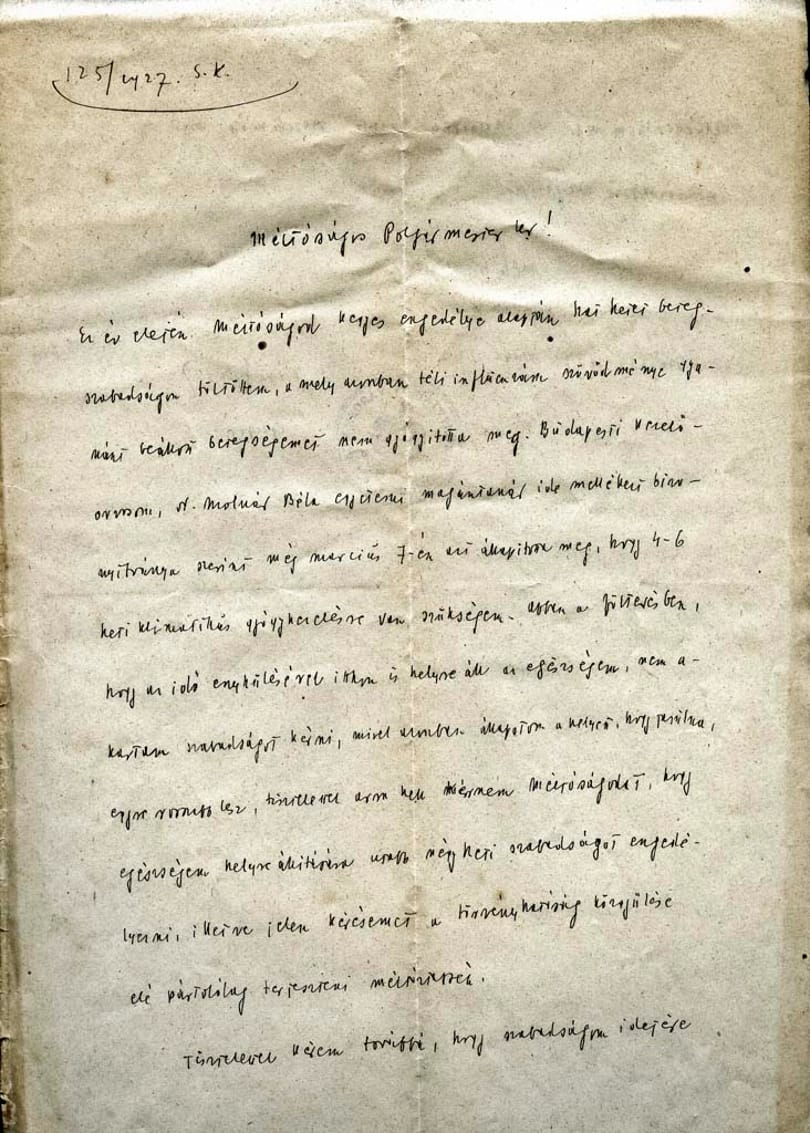 125/1927. s.k.
Méltóságos Polgármester Úr!
Ez év elején Méltóságod kegyes engedélye alapján hat hetet beteg-
szabadságon töltöttem, a mely azonban téli influenzám szövődménye gya-
nánt beállott betegségemet nem gyógyította meg. Budapesti kezelő-
orvosom, dr. Molnár Béla egyetemi magántanár ide mellékelt bizo-
nyítványa szerint még március 7-én azt állapította meg, hogy 4-6
heti klimatikus gyógykezelésre van szükségem. Abban a föltevésben,
hogy az idő enyhülésével itthon is helyre áll az egészségem, nem a-
kartam szabadságot kérni, mivel azonban állapotom a helyett, hogy javulna,
egyre rosszabb lesz, tisztelettel arra kell kérnem Méltóságodat, hogy
egészségem helyre állítására ujabb négy heti szabadságot engedé-
lyezni, illetve jelen kérésemet a törvényhatóság közgyűlése
elé pártolólag terjeszteni méltóztassék.
Tisztelettel kérem továbbá, hogy szabadságom idejére